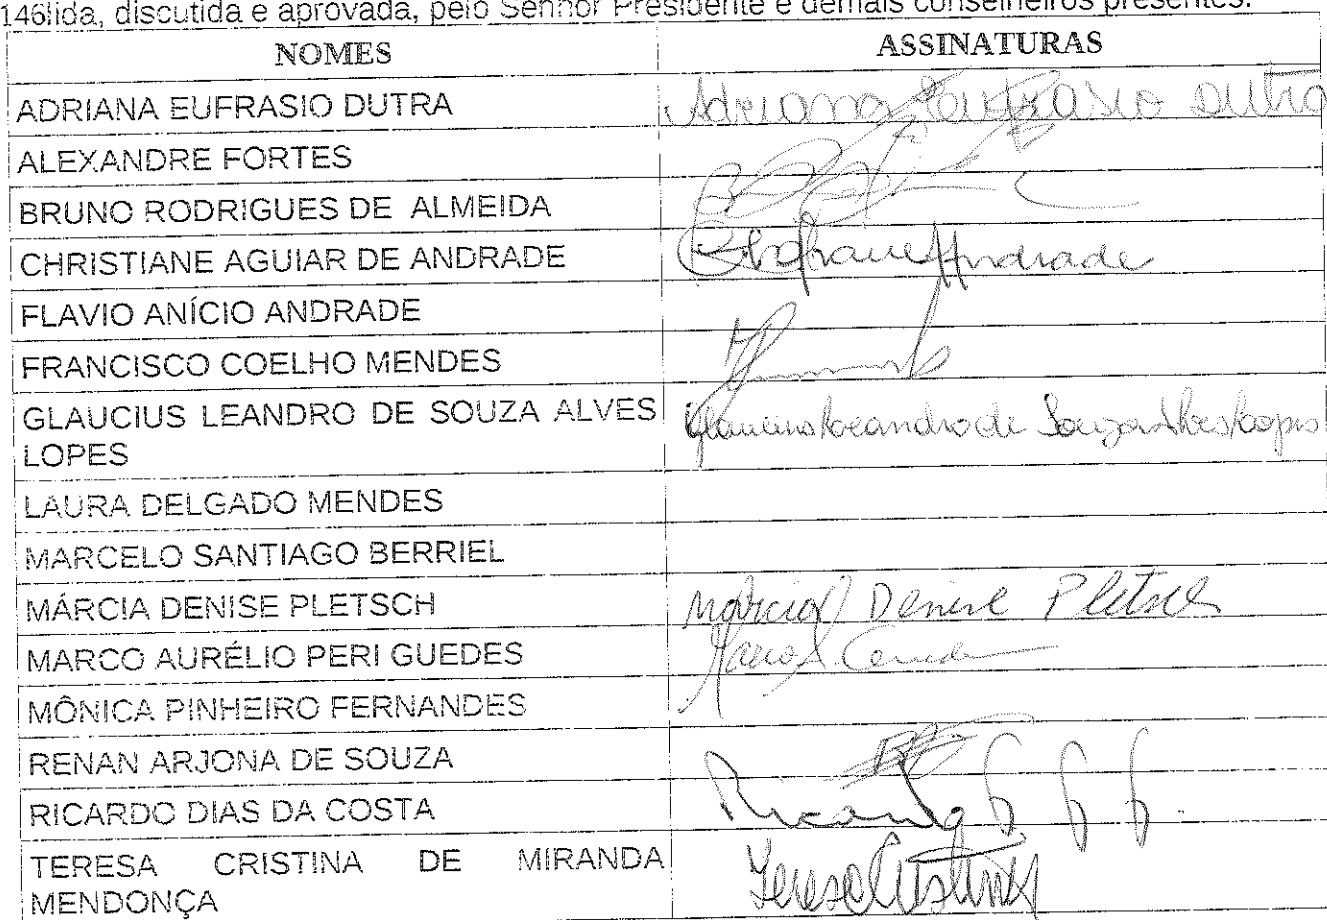 146lida, discutida e aprovada, pelo Senhor Presidente e demais conselheiros presentes.
NOMES ASSINATURAS
ADRIANA EUFRASIO DUTRA Adriana Eufrasio Dutra
ALEXANDRE FORTES
BRUNO RODRIGUES DE ALMEIDA
CHRISTIANE AGUIAR DE ANDRADE Andrade
FLAVIO ANÍCIO ANDRADE
FRANCISCO COELHO MENDES
GLAUCIUS LEANDRO DE SOUZA ALVES Glaucius Leandro de Souza Alves Lopes
LOPES
LAURA DELGADO MENDES
MARCELO SANTIAGO BERRIEL
MÁRCIA DENISE PLETSCH Márcia Denise Pletsch
MARCO AURÉLIO PERI GUEDES
MÔNICA PINHEIRO FERNANDES
RENAN ARJONA DE SOUZA
RICARDO DIAS DA COSTA Ricardo
TERESA CRISTINA DE MIRANDA Teresa Cristina
MENDONÇA